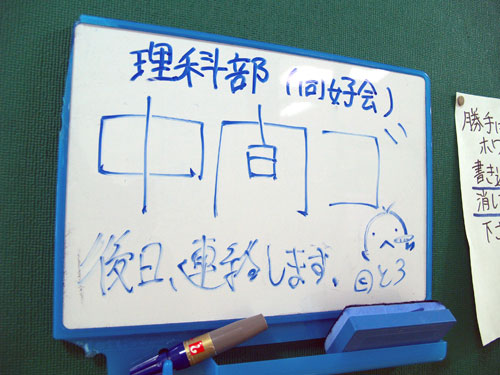 理科部(同好会)
中間ゴ
後日、連絡します。
©とろ
勝手に
ホワ
書き込
消し
下さ